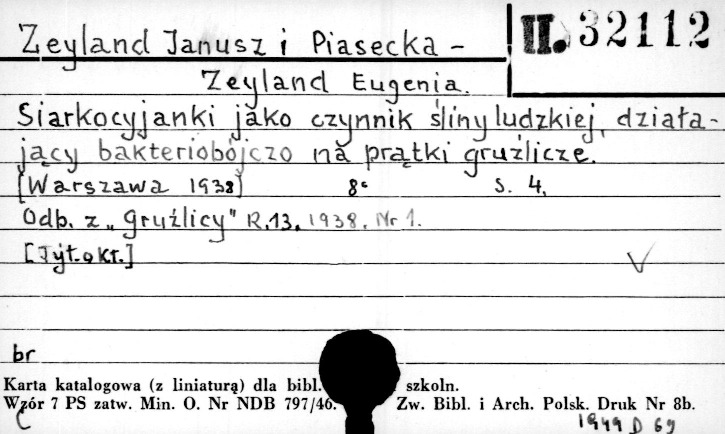 Zeyland Janusz i Piasecka-
II. 32112
Zeyland Eugenia.
Siarkocyjanki jako czynnik śliny ludzkiej, działa-
jący bakteriobójczo na prątki gruźlicze.
[Warszawa 1938] 8° s. 4.
Odb. z "Gruźlicy" R.13. 1938. Nr 1.
[Tyt. okł.]
br
Karta katalogowa (z liniaturą) dla bibl. szkoln.
Wzór 7 PS zatw. Min. O. Nr NDB 797/46. Zw. Bibl. i Arch. Polsk. Druk Nr 8b.
1949 D 69